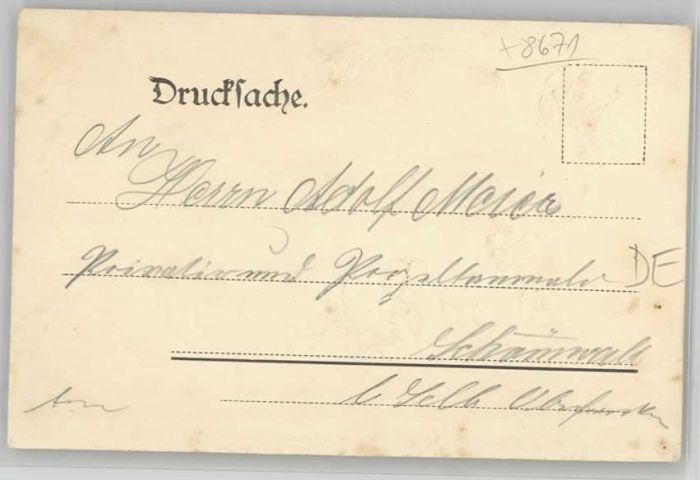 +8671
Drucksache.
An
Herrn Adolf Meier
Privatier und Porzellanmaler DE
Schönwald
b Selb Oberfranken